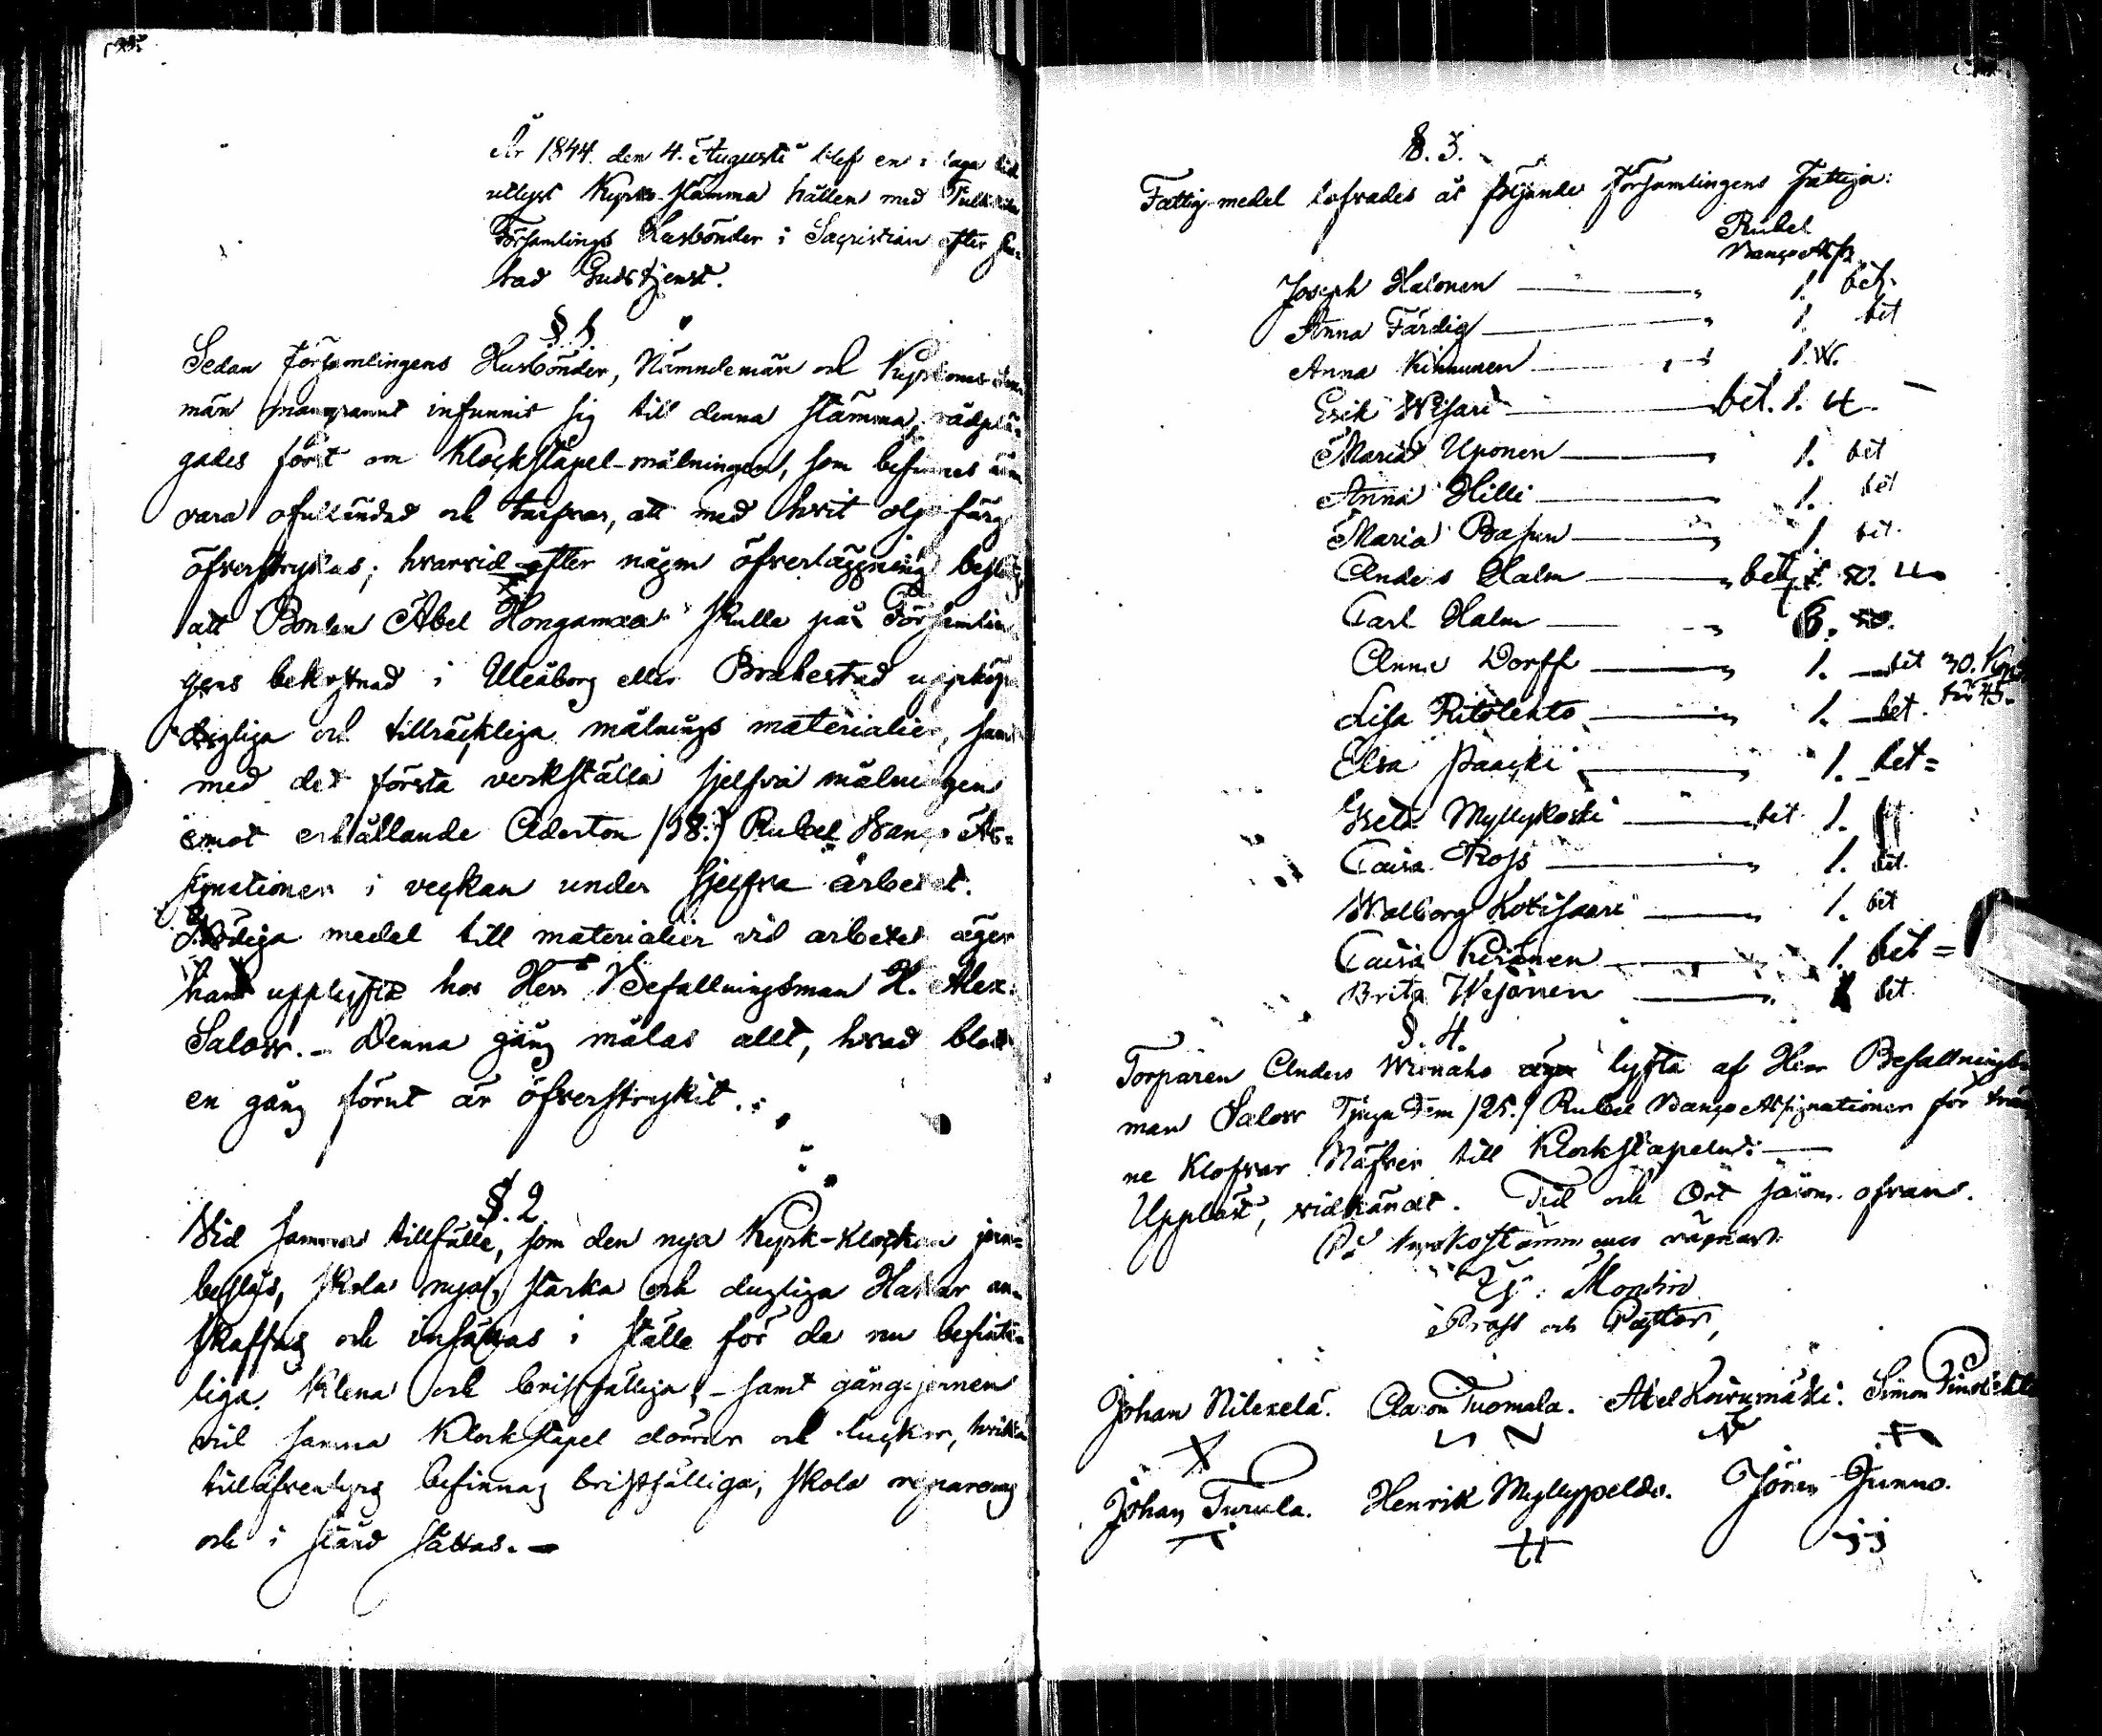 År 1844. den 4. Augusti blef en i laga tid
utlyst Kyrko-stämma hållen med
Församlings Husbönder i Sacristian efter
tad Gudstjenst.
§ 1.
Sedan Församlingens Husbönder, Nämndemän och
män mangrannt infunnit sig till denna stämma, rådplä-
gades först om Klockstapel-målningen, som befinnes än
vara ofulländad och tarfvar, att med hvit olje färg
öfverstrykas; hvarvid efter någon öfverläggning beslöts,
att Bonden Abel Hongamaa skulle på Församlin-
gens bekostnad i Uleåborg eller Brahestad uppköpa
dugliga och tillräckliga målnings materialier, samt
med det första verkställa sjelfva målningen
emot erhållande Aderton /18./ Rubel Banco As-
signationer i veckan under sjelfva arbetet.
Nödiga medel till materialier vid arbetet äger
han upplyfta hos Herr Befallningsman H. Alex.
Salow. - Denna gång målas allt, hvad blott
en gång förut är öfverstrykit.
§. 2
Vid samma tillfälle, som den nya Kyrk-klockan jern-
beslås, skola nya, starka och dugliga Hakar an-
skaffas och insättas i ställe för de nu befint-
liga klena och bristfälliga, - samt gångjernen
vid samma Klockstapel dörrar och luckor, hvilka
tilläfventyrs befinnas bristfälliga, skola repareras
och i stånd sättas. -
§. 3.
Fattig-medel lofvades åt följande Församlingens Fattiga:
Rubel
Banco Ass.
Joseph Halonen 1. bet.
Anna Färdig 1. bet
Anna Kinnunen 1.
Erik Wisari bet. 1.
Maria Uponen 1. bet
Anna Hilli 1. bet
Maria Basun 1 bet.
Anders Halm bet
Carl Halm
Anna Dorff 1. bet 30. Kop
Lisa Ritolehto 1. bet.
Elsa Paacki 1. bet =
Greta Myllykoski bet 1.
Caisa Ross 1. bet.
Walborg Kotisaari 1. bet
Caisa Keränen 1. bet =
Brita Wejonen bet.
§. 4.
Torparen Anders äger lyfta af Herr Befallnings-
man Salow Tjugu Fem /25./ Rubel Banco Assignationer för
ne Klofvar Näfver till Klockstapeln. -
Uppläst, vidkändt. Tid och Ort såsom ofvan.
På kyrkostämmans vägnar
Montin
Prost och Pastor,
Johan Nilexelä. Aaron Tuomala. Abel Koivumäki. Simon
Johan Turula. Henrik Myllypeldo. Jöran Junno.